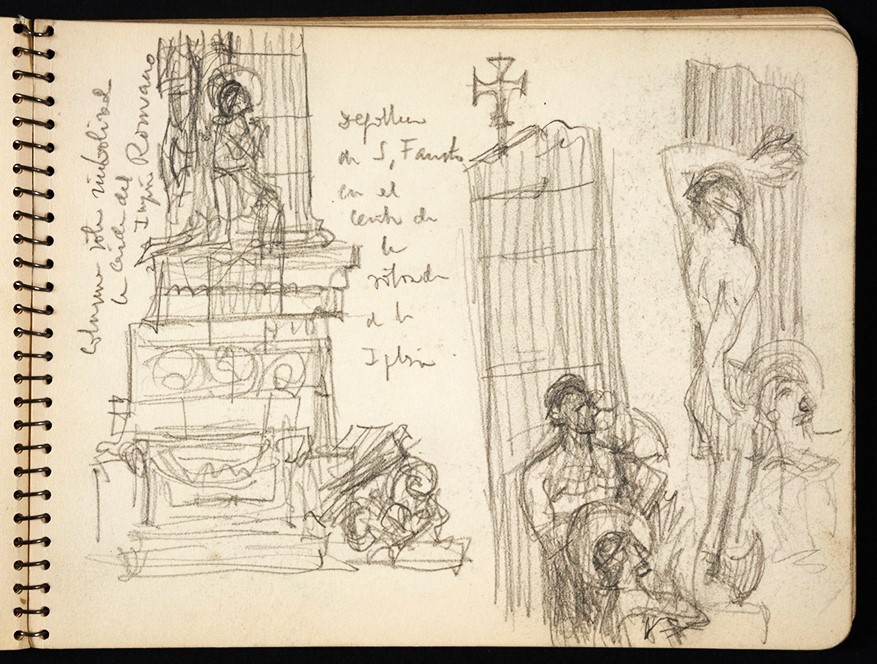 Columna rota simbolizand
la caida del
Imperio Romano
sepulcro
de S. Fausto
en el
centro de
la
rotonda
de la
Iglesia